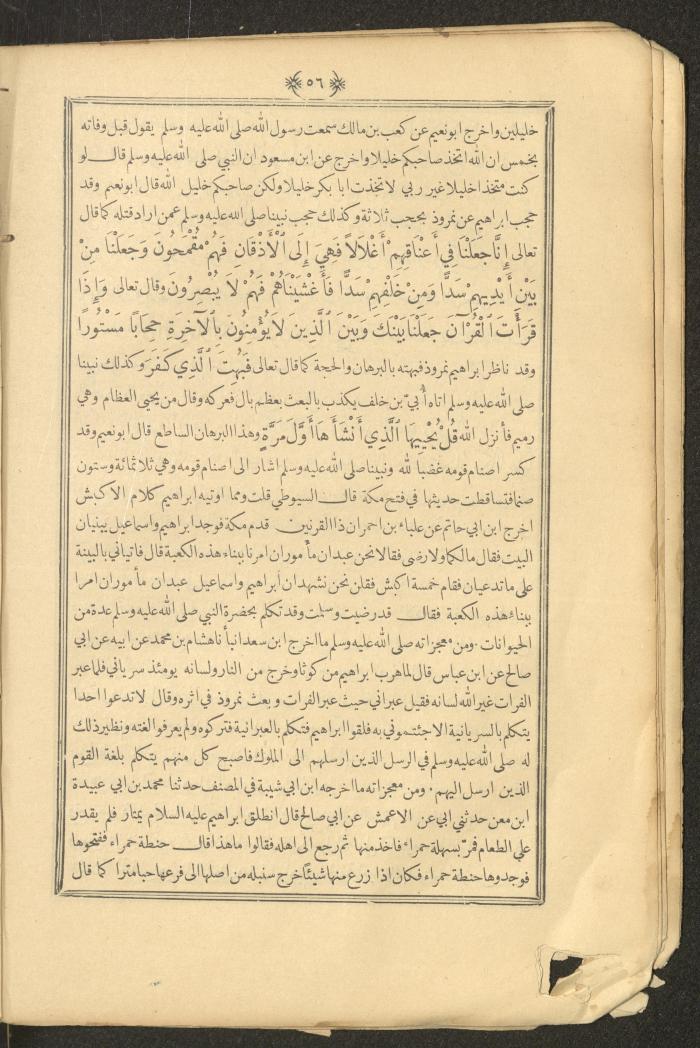 ٥٦
خليلين واخرج ابو نعيم عن كعب بن مالك سمعت رسول الله صلى الله عليه وسلم يقول قبل وفاته
بخمس ان الله اتخذ صاحبكم خليلا واخرج عن ابن مسعود ان النبي صلى الله عليه وسلم قال لو
كنت متخذا خليلا غير ربي لا تخذت ابا بكر خليلا ولكن صاحبكم خليل الله قال ابو نعيم وقد
حجب ابراهيم عن نمروذ بحجب ثلاثة وكذلك حجب نبينا صلى الله عليه وسلم عمن اراد قتله كما قال
تعالى إِنَّا جَعَلْنَا فِي أَعْنَاقِهِمْ أَغْلَالاً فَهِيَ إِلَى ٱلْأَذْقَانِ فَهُمْ مُقْمَحُونَ وَجَعَلْنَا مِنْ
بَيْنِ أَيْدِيهِمْ سَدًّا وَمِنْ خَلْفِهِمْ سَدًّا فَأَغْشَيْنَاهُمْ فَهُمْ لَا يُبْصِرُونَ وقال تعالى وَإِذَا
قَرَأْتَ ٱلْقُرْآنَ جَعَلْنَا بَيْنَكَ وَبَيْنَ ٱلَّذِينَ لَا يُؤْمِنُونَ بِٱلْآخِرَةِ حِجَابًا مَسْتُورًا
وقد ناظر ابراهيم نمروذ فبهته بالبرهان والحجة كما قال تعالى فَبُهِتَ ٱلَّذِي كَفَرَ وكذلك نبينا
صلى الله عليه وسلم اتاه أُبيّ بن خلف يكذب بالبعث بعظم بال ففركه وقال من يحيى العظام وهي
رميم فأنزل الله قُلْ يُحْيِيهَا ٱلَّذِي أَنْشَأَهَا أَوَّلَ مَرَّةٍ وهذا البرهان الساطع قال ابو نعيم وقد
كسر اصنام قومه غضبا لله ونبينا صلى الله عليه وسلم اشار الى اصنام قومه وهي ثلاثمائة وستون
صنما فتساقطت حديثها في فتح مكة قال السيوطي قلت ومما اوتيه ابراهيم كلام الاكبش
اخرج ابن ابي حاتم عن علباء بن احمر ان ذا القرنين قدم مكة فوجد ابراهيم واسماعيل يبنيان
البيت فقال مالكما ولارضى فقالا نحن عبدان مأموران امرنا ببناء هذه الكعبة قال فاتياني بالبينة
على ما تدعيان فقام خمسة اكبش فقلن نحن نشهد ان ابراهيم واسماعيل عبدان مأموران امرا
ببناء هذه الكعبة فقال قد رضيت وسلمت وقد تكلم بحضرة النبي صلى الله عليه وسلم عدة من
الحيوانات ٠ ومن معجزاته صلى الله عليه وسلم ما اخرج ابن سعد انبأنا هشام بن محمد عن ابيه عن ابي
صالح عن ابن عباس قال لما هرب ابراهيم من كوثا وخرج من النار ولسانه يومئذ سرياني فلما عبر
الفرات غير الله لسانه فقيل عبراني حيث عبر الفرات وبعث نمروذ في اثره وقال لا تدعوا احدا
يتكلم بالسريانية الا جئتموني به فلقوا ابراهيم فتكلم بالعبرانية فتركوه ولم يعرفوا لغته ونظير ذلك
له صلى الله عليه وسلم في الرسل الذين ارسلهم الى الملوك فاصبح كل منهم يتكلم بلغة القوم
الذين ارسل اليهم ٠ ومن معجزاته ما اخرجه ابن ابي شيبة في المصنف حدثنا محمد بن ابي عبيدة
ابن معن حدثني ابي عن الاعمش عن ابي صالح قال انطلق ابراهيم عليه السلام يمتار فلم يقدر
على الطعام فمر بسهلة حمراء فاخذ منها ثم رجع الى اهله فقالوا ما هذا قال حنطة حمراء ففتحوها
فوجدوها حنطة حمراء فكان اذا زرع منها شيئًا خرج سنبله من اصلها الى فرعها حبا متراكما قال